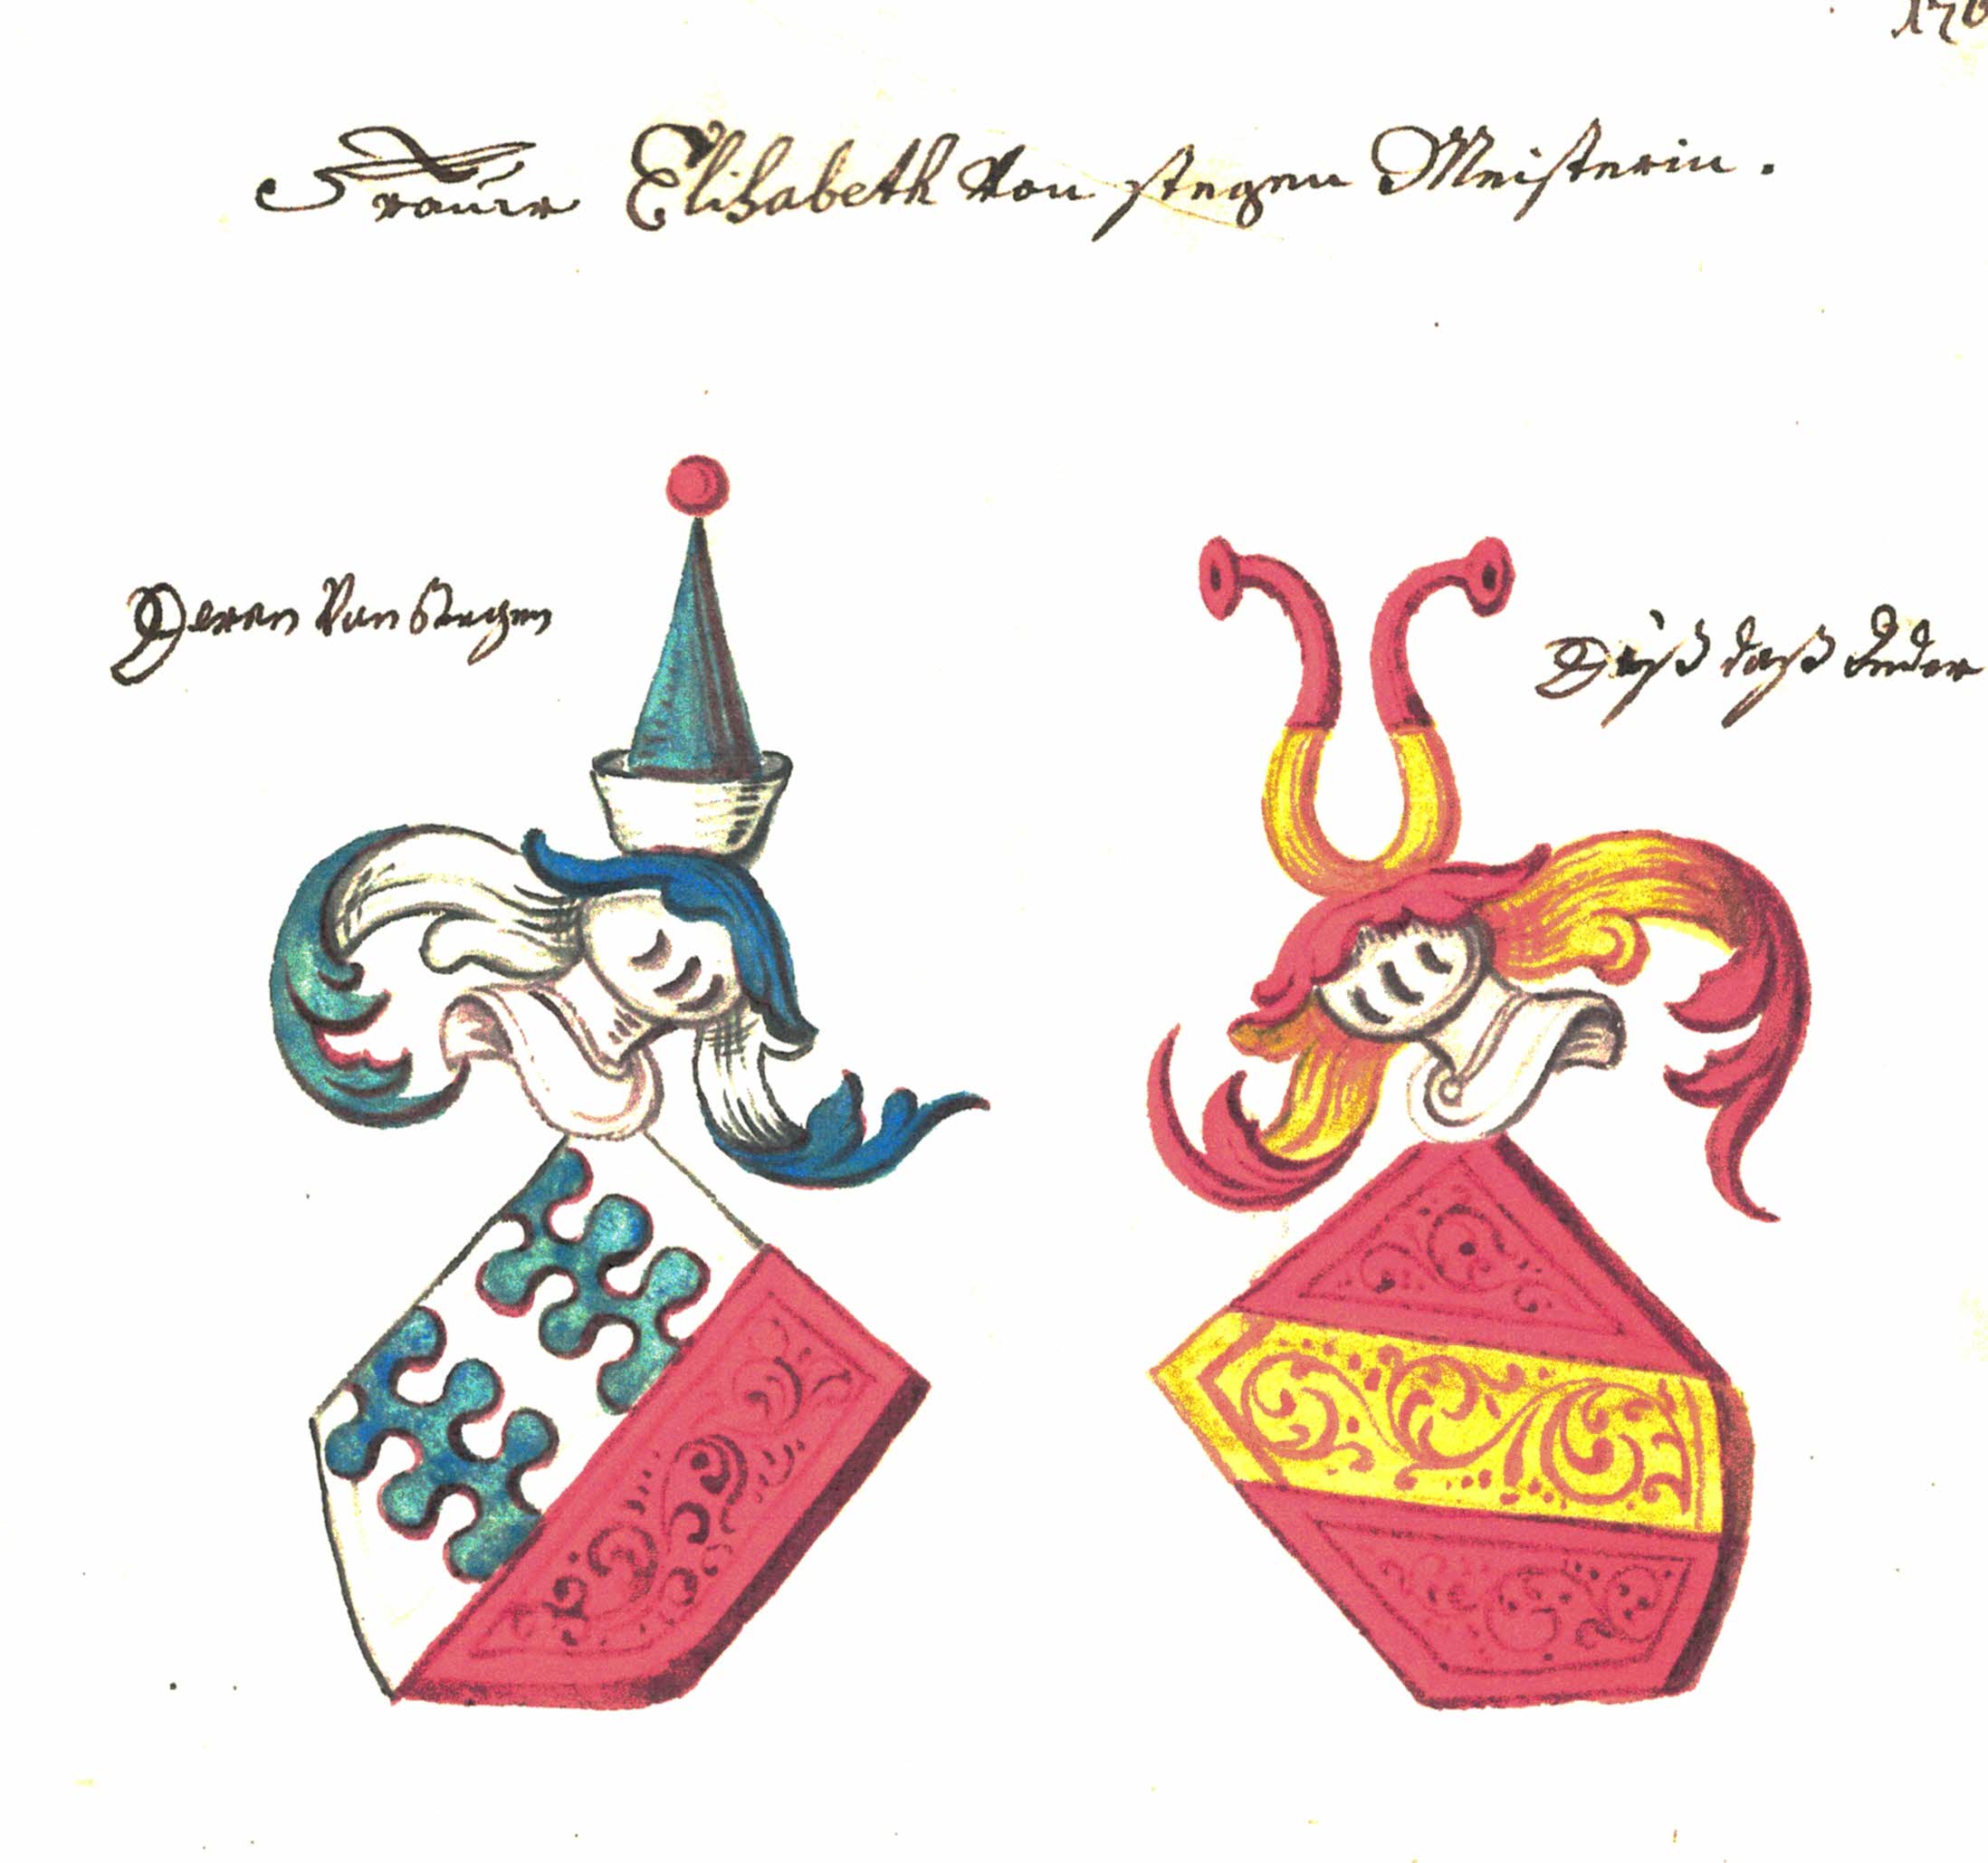 Frauw Elisabeth Von stegen Meisterin.
Deren Von Stegen
Diß daß Ander